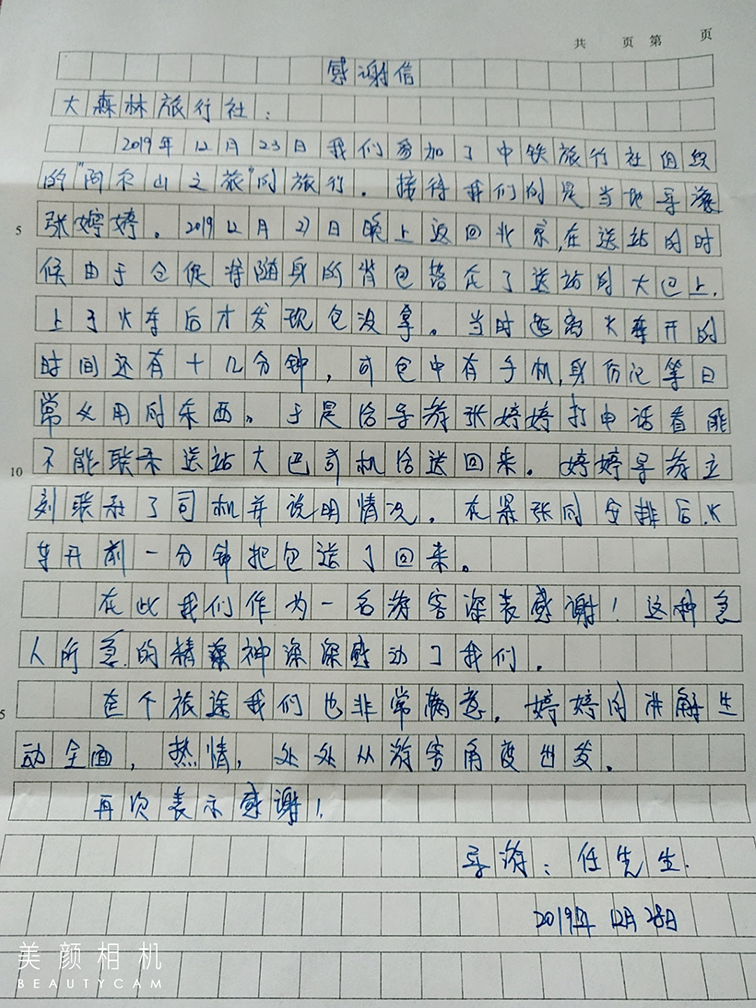 共 页 第 页
感谢信
大森林旅行社：
2019年12月23日我们参加了中铁旅行社组织
的"阿尔山之旅"的旅行。接待我们的是当地导游
5
张婷婷。2019 12月27日晚上返回北京，在送站的时
候由于仓促将随身的背包落在了送站的大巴上，
上了火车后才发现包没拿。当时距离火车开的
时间还有十几分钟，可包中有手机，身份证等日
常必用的东西。于是给导游张婷婷打电话看能
10
不能联系送站大巴司机给送回来。婷婷导游立
刻联系了司机并说明情况。在紧张的安排后，火
车开前一分钟把包送了回来。
在此我们作为一名游客深表感谢！这种急
人所急的精神深深感动了我们。
5
在个旅途我们也非常满意。婷婷的讲解生
动全面，热情，处处从游客角度出发。
再次表示感谢！
导游：任先生
2019年12月28日
美颜相机
BEAUTYCAM